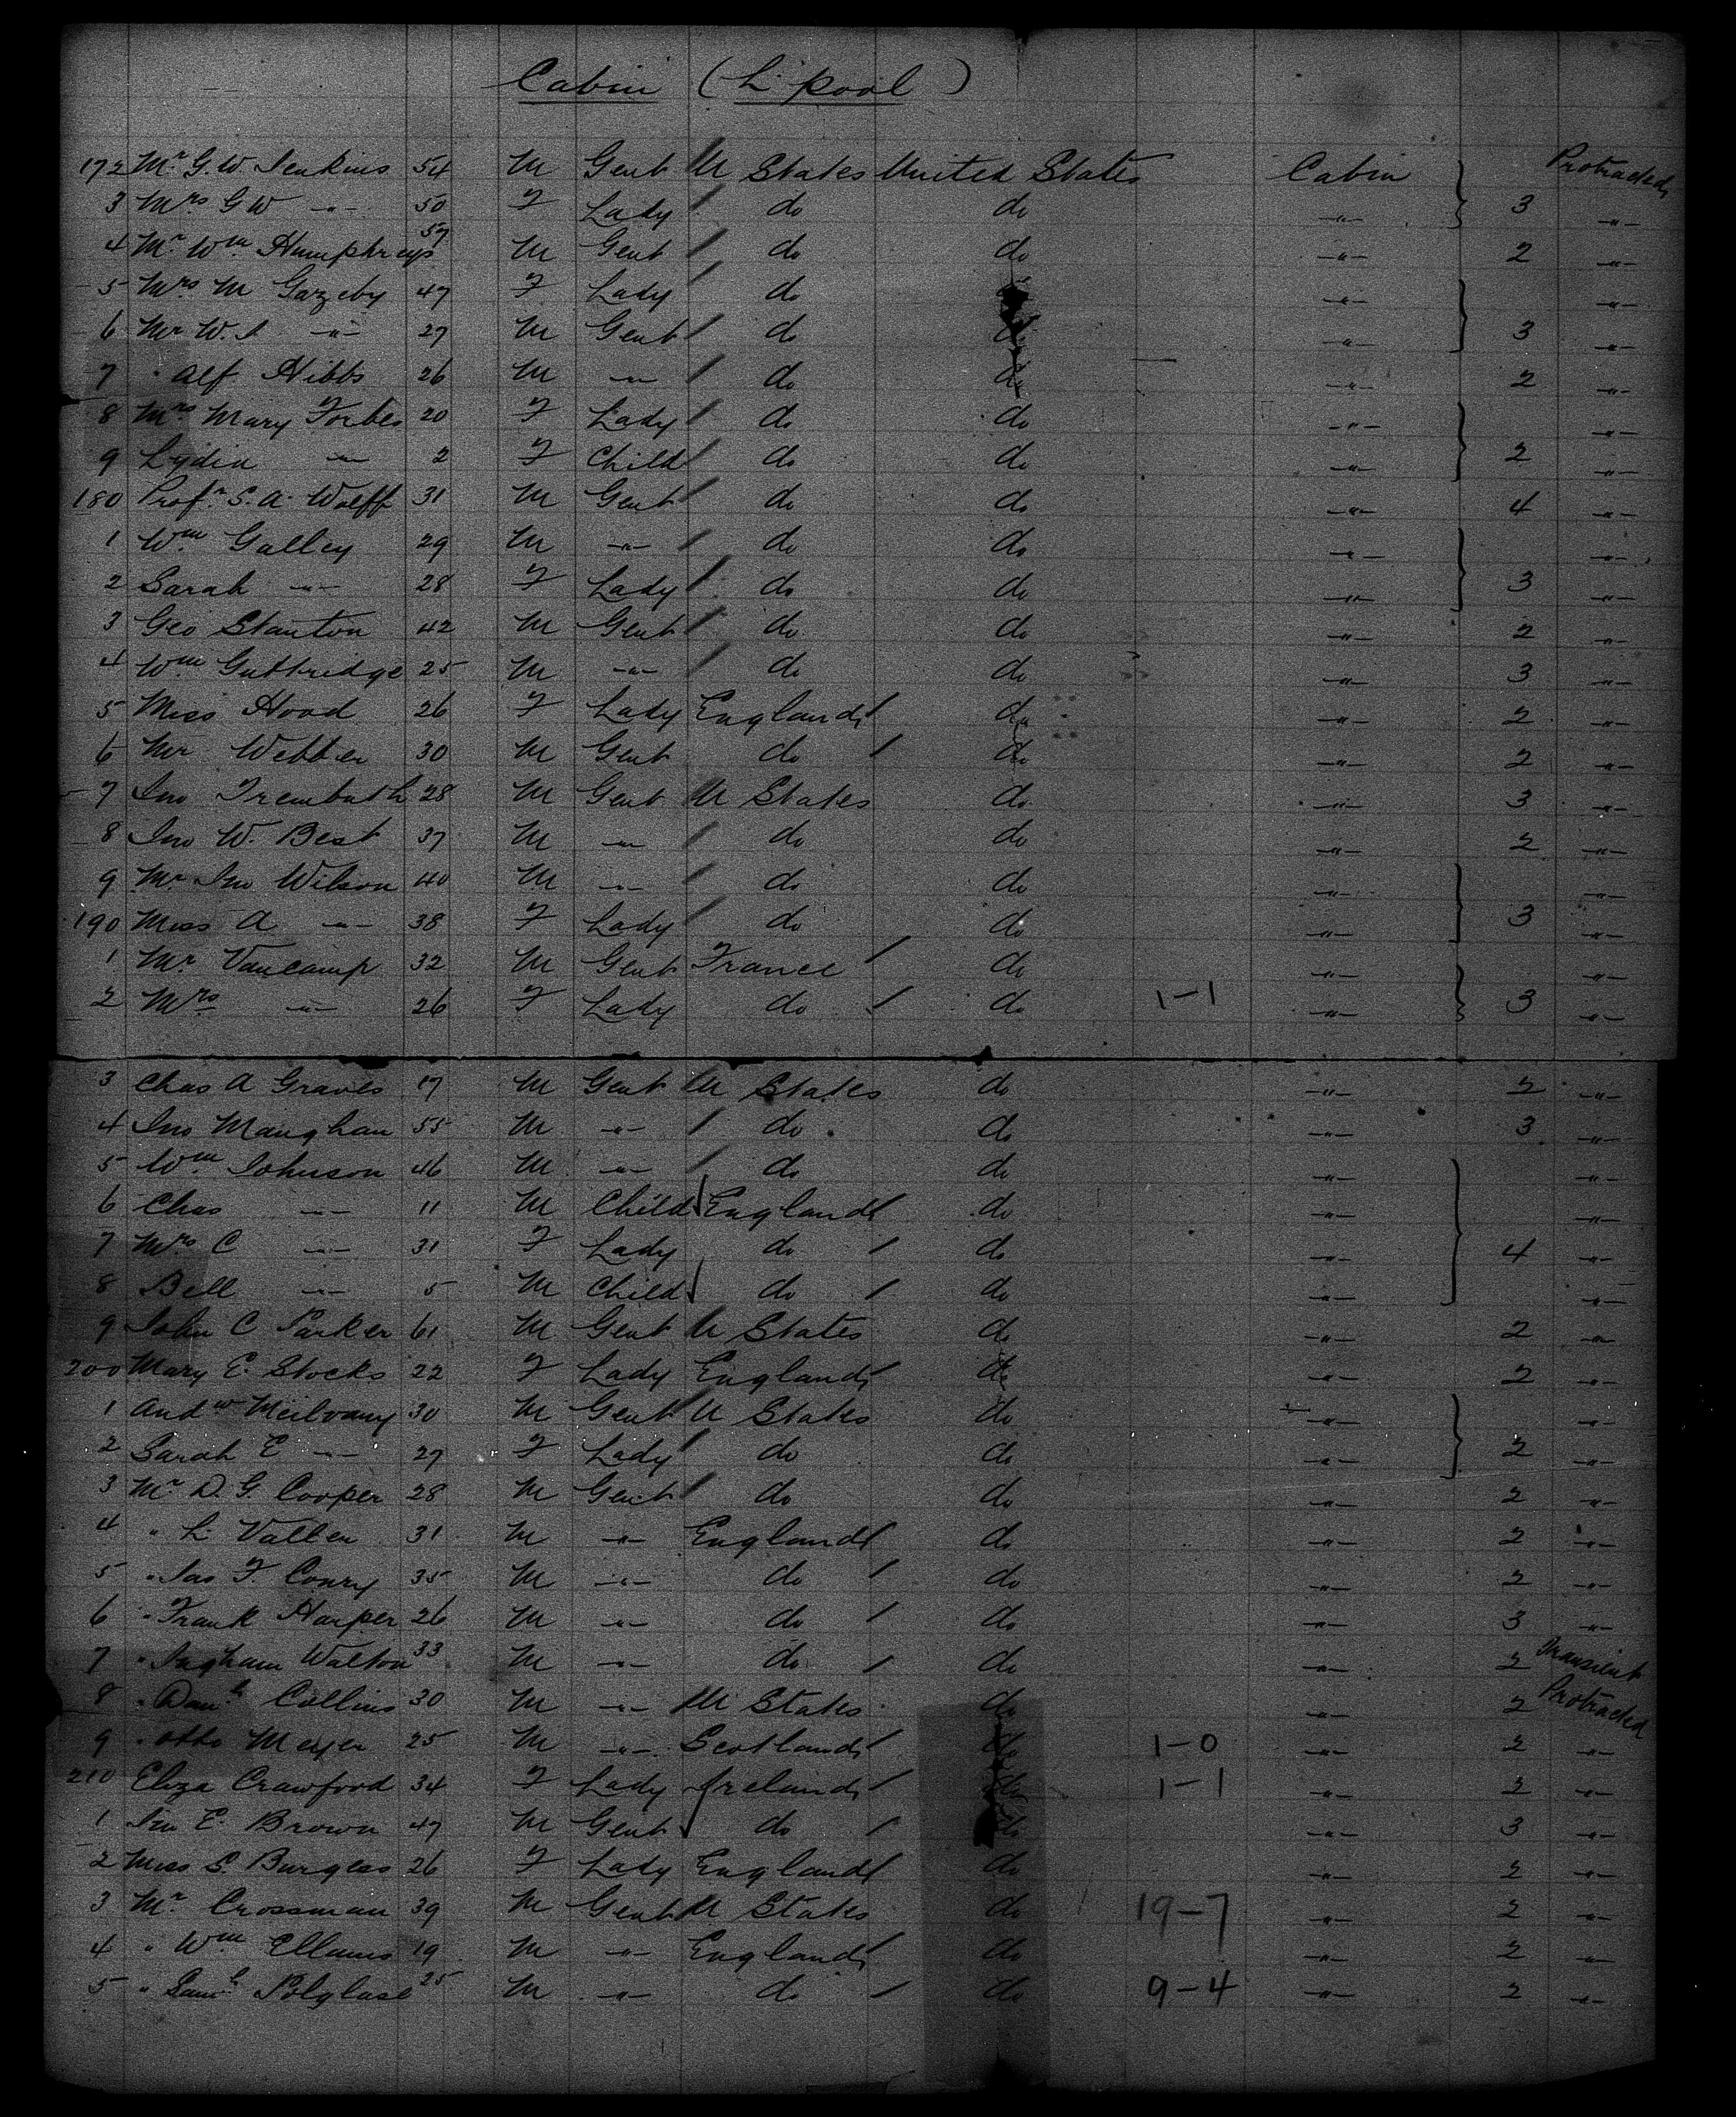 Cabin (L'pool)
172 Mr G.W. Jenkins 54 M Gent U States United States Cabin Protracted
3 Mrs G W -"- 50 F Lady do do -"- 3 -"-
4 Mr Wm Humphreys 57 M Gent do do -"- 2 -"-
5 Mrs M Gazeby 47 F Lady do do -"- -"-
6 Mr W.J -"- 27 M Gent do do -"- 3 -"-
7 " Alf Hibbs 26 M -"- do do -"- 2 -"-
8 Mrs Mary Forbes 20 F Lady do do -"- -"-
9 Lydia -"- 2 F Child do do -"- 2 -"-
180 Profr S.A. Wolff 31 M Gent do do -"- 4 -"-
1 Wm Galley 29 M -"- do do -"- -"-
2 Sarah -"- 28 F Lady do do -"- 3 -"-
3 Geo Stanton 42 M Gent do do -"- 2 -"-
4 Wm Guttridge 25 M -"- do do -"- 3 -"-
5 Miss Hood 26 F Lady England do -"- 2 -"-
6 Mr Webber 30 M Gent do do -"- 2 -"-
7 Jno Trembath 28 M Gent U States do -"- 3 -"-
8 Jno W. Best 37 M -"- do do -"- 2 -"-
9 Mr Jno Wilson 40 M -"- do do -"- -"-
190 Miss A -"- 38 F Lady do do -"- 3 -"-
1 Mr Vancamp 32 M Gent France do -"- -"-
2 Mrs -"- 26 F Lady do do 1-1 -"- 3 -"-
3 Chas A Graves 17 M Gent U States do -"- 2 -"-
4 Jno Maughan 55 M -"- do do -"- 3 -"-
5 Wm Johnson 46 M -"- do do -"- -"-
6 Chas -"- 11 M Child England do -"- -"-
7 Mrs C -"- 31 F Lady do do -"- 4 -"-
8 Bell -"- 5 M Child do do -"- -"-
9 John C Parker 61 M Gent U States do -"- 2 -"-
200 Mary E. Stocks 22 F Lady England do -"- 2 -"-
1 Andw 30 M Gent U States do -"- -"-
2 Sarah E -"- 27 F Lady do do -"- 2 -"-
3 Mr D. G. Cooper 28 M Gent do do -"- 2 -"-
4 " L Vallen 31 M -"- England do -"- 2 -"-
5 " Jas F. Conry 35 M -"- do do -"- 2 -"-
6 " Frank Harper 26 M -"- do do -"- 3 -"-
7 " Ingham Walton 33 M -"- do do -"- 2 Transient
8 " Danl Collins 30 M -"- U States do -"- 2 Protracted
9 " Otto Meyer 25 M -"- Scotland do 1-0 -"- 2 -"-
210 Eliza Crawford 34 F Lady Ireland do 1-1 -"- 2 -"-
1 Jno E. Brown 47 M Gent do do -"- 3 -"-
2 Miss S. Burgess 26 F Lady England do -"- 2 -"-
3 Mr Crossman 39 M Gent U States do 19-7 -"- 2 -"-
4 " Wm Ellams 19 M -"- England do -"- 2 -"-
5 " Saml Polglase 25 M -"- do do 9-4 -"- 2 -"-